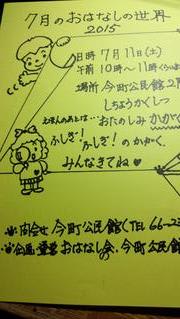 7月のおはなしの世界
2015
日時 7月11日(土)
午前10時〜11時くらい
場所 今町公民館2
しちょうかくしつ
えほんのあとは…おたのしみかがく
ふしぎ!ふしぎ!のかがく、
みんなきてね♡
問合せ 今町公民館(TEL 66-2
企画運営 おはなし会、今町公民館